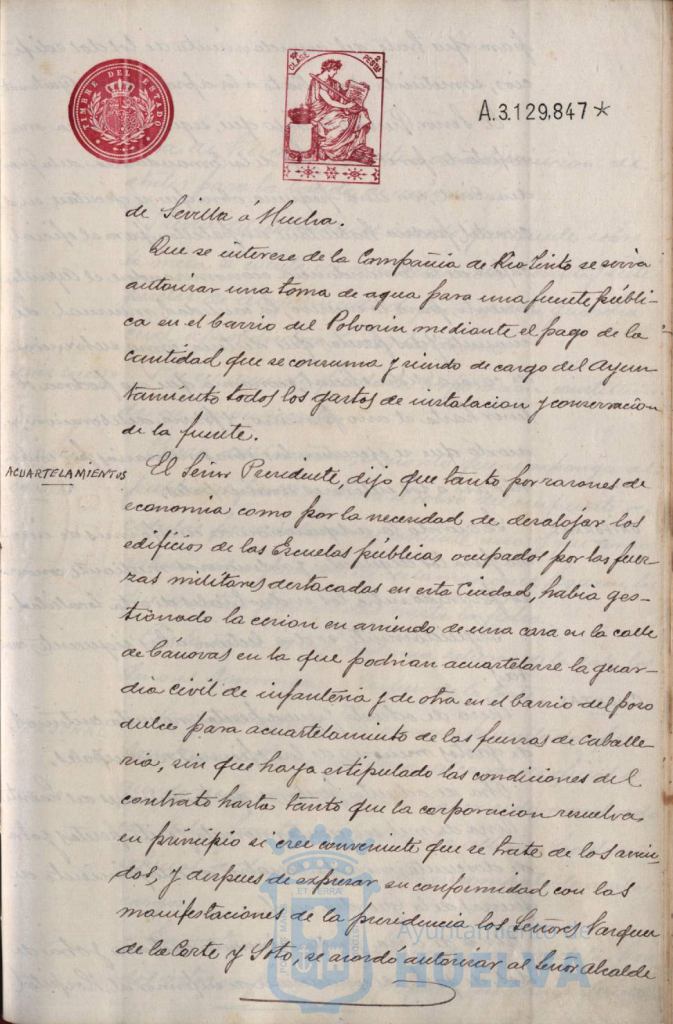 TIMBRE DEL ESTADO
10ª CLASE
2 PESETAS
A.3.129,847*
de Sevilla á Huelva.
Que se interese de la Compañia de Rio Tinto se sirva
autorizar una toma de agua para una fuente públi-
ca en el barrio del Polvorin mediante el pago de la
cantidad que se consuma y siendo de cargo del Ayun-
tamiento todos los gastos de instalacion y conservacion
de la fuente.
ACUARTELAMIENTOS
El Señor Presidente, dijo que tanto por razones de
economia como por la necesidad de desalojar los
edificios de las Escuelas públicas ocupados por las fuer-
zas militares destacadas en esta Ciudad, habia ges-
tionado la cesion en arriendo de una casa en la calle
de Cánovas en la que podrian acuartelarse la guar-
dia civil de infanteria y de otra en el barrio del pozo
dulce para acuartelamiento de las fuerzas de Caballe-
ria, sin que haya estipulado las condiciones del
contrato hasta tanto que la corporacion resuelva
en principio si cree conveniente que se trate de los arrien-
dos, y despues de expresar su conformidad con las
manifestaciones de la presidencia los Señores Vazquez
de la Corte y Soto, se acordó autorizar al Señor Alcalde
Ayuntamiento de
HUELVA